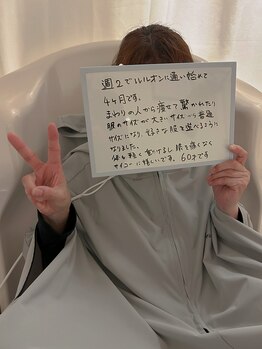 週2でルルオンに通い始めて
4ヶ月です。
まわりの人から痩せて驚かれたり
服のサイズが大きいサイズから普通
サイズになり、好きな服を選べるように
なりました。
体も軽く動けるし膝も痛くなく
サイコーに嬉しいです。60才です